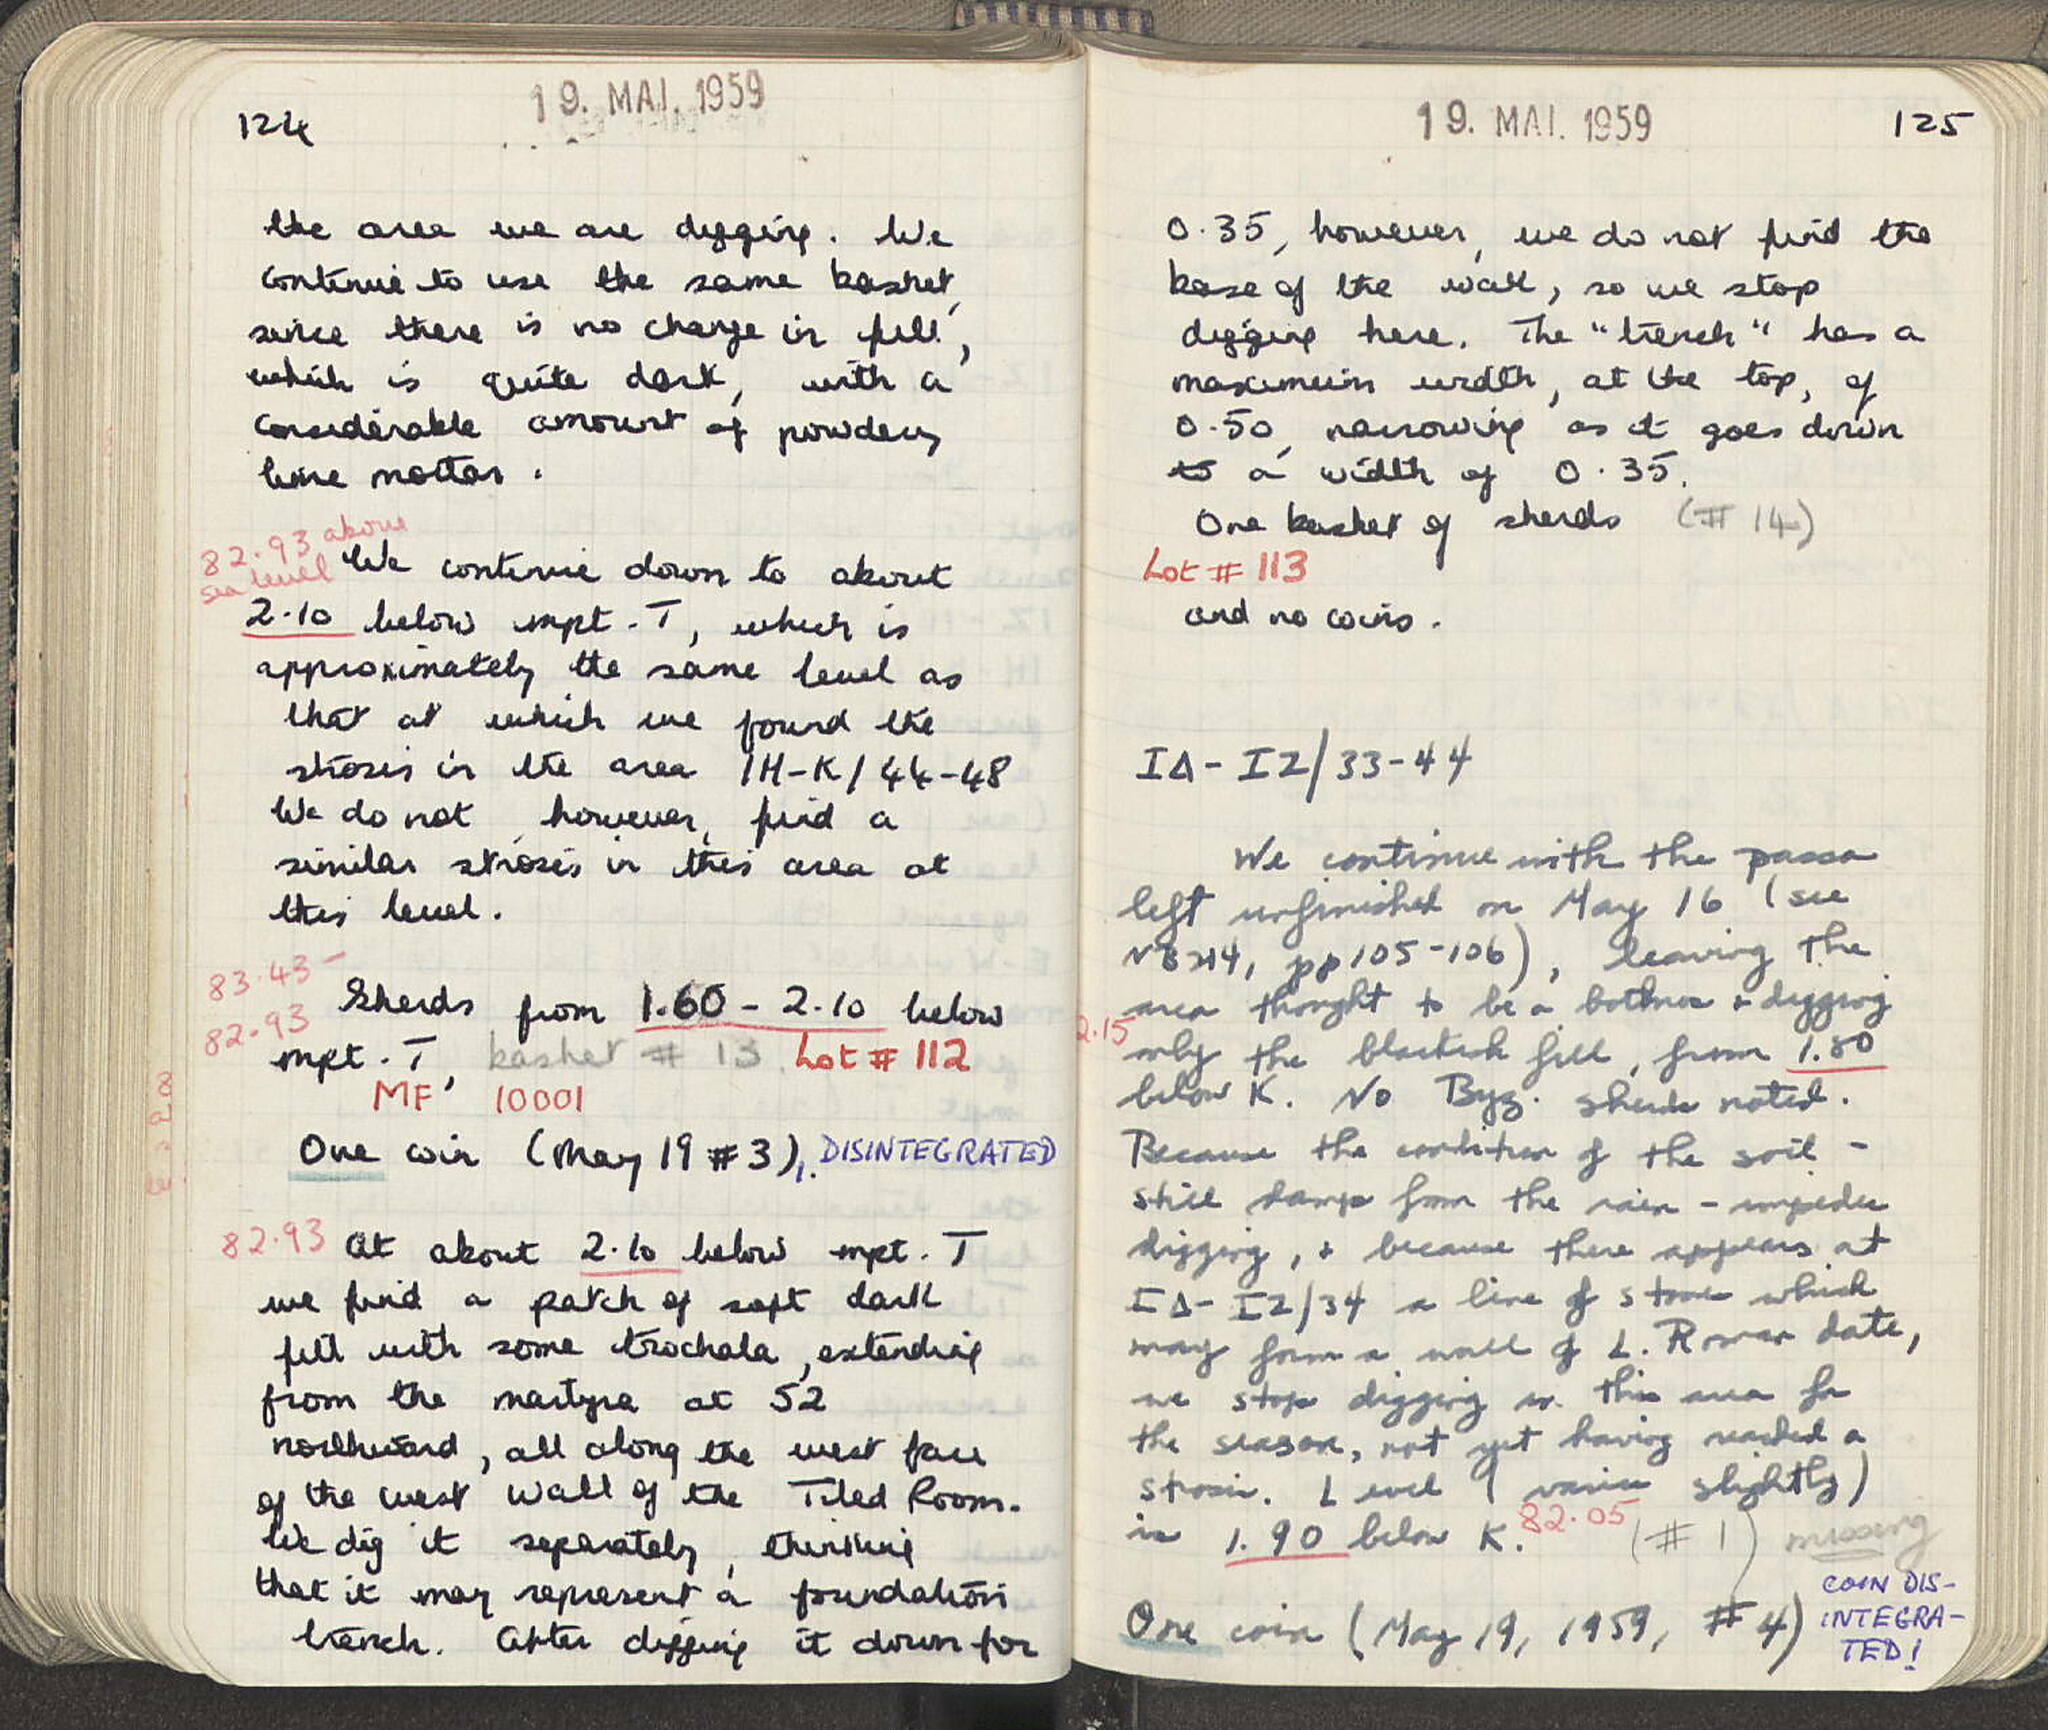 19. MAI. 1959
124
the area we are digging. We
continue to use the same basket,
since there is no change in fill,
which is quite dark, with a
considerable amount of powdery
lime mortar.
82.93 above
sea level
We continue down to about
2.10 below mpt. T, which is
approximately the same level as
that at which we found the
strosis in the area IH-K/44-48
We do not, however, find a
similar strosis in this area at
this level.
83.43-
82.93
Sherds from 1.60 - 2.10 below
mpt. T, basket # 13. Lot # 112
MF 10001
One coin (May 19 #3), DISINTEGRATED
82.93 At about 2.10 below mpt. T
we find a patch of soft dark
fill with some trochala, extending
from the martyra at 52
northward, all along the west face
of the west wall of the Tiled Room.
We dig it separately, thinking
that it may represent a foundation
trench. After digging it down for
19. MAI. 1959
125
0.35, however, we do not find the
base of the wall, so we stop
digging here. The "trench" has a
maximum width, at the top, of
0.50, narrowing as it goes down
to a width of 0.35.
One basket of sherds (# 14)
Lot # 113
and no coins.
IΔ - IZ/33-44
We continue with the passa
left unfinished on May 16 (see
pp 105-106), leaving the
area thought to be a bothros + digging
2.15
only the blackish fill, from 1.80
below K. No Byz. sherds noted.
Because the condition of the soil -
still damp from the rain - impedes
digging, + because there appears at
IΔ - IZ/34 a line of stones which
may form a wall of L. Roman date,
we stop digging in this area for
the season, not yet having reached a
strosis. Level (varies slightly)
is 1.90 below K. 82.05 (# 1) missing
One coin (May 19, 1959, # 4)
COIN DIS-
INTEGRA-
TED!